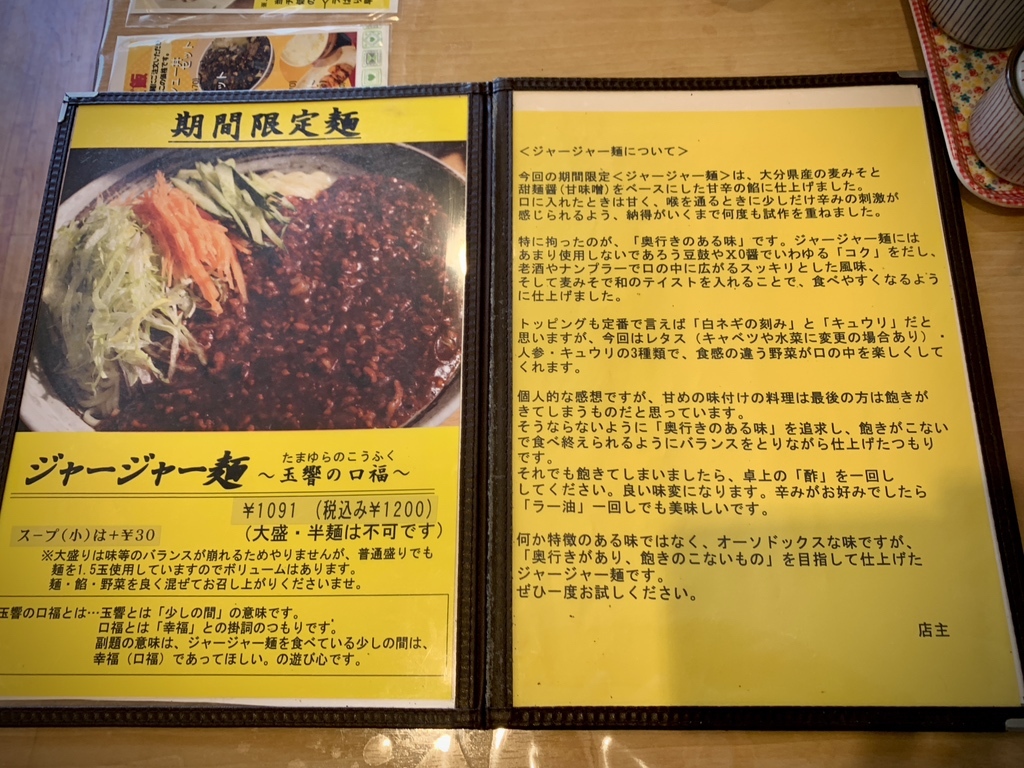 期間限定麺
ジャージャー麺
たまゆらのこうふく
～玉響の口福～
¥1091 (税込み¥1200)
スープ(小)は+¥30
(大盛・半麺は不可です)
※大盛りは味等のバランスが崩れるためやりませんが、普通盛りでも
麺を1.5玉使用していますのでボリュームはあります。
麺・餡・野菜を良く混ぜてお召し上がりくださいませ。
玉響の口福とは…玉響とは「少しの間」の意味です。
口福とは「幸福」との掛詞のつもりです。
副題の意味は、ジャージャー麺を食べている少しの間は、
幸福（口福）であってほしい。の遊び心です。
＜ジャージャー麺について＞
今回の期間限定＜ジャージャー麺＞は、大分県産の麦みそと
甜麺醤(甘味噌)をベースにした甘辛の餡に仕上げました。
口に入れたときは甘く、喉を通るときに少しだけ辛みの刺激が
感じられるよう、納得がいくまで何度も試作を重ねました。
特に拘ったのが、「奥行きのある味」です。ジャージャー麺には
あまり使用しないであろう豆鼓やXO醤でいわゆる「コク」をだし、
老酒やナンプラーで口の中に広がるスッキリとした風味、
そして麦みそで和のテイストを入れることで、食べやすくなるよう
に仕上げました。
トッピングも定番で言えば「白ネギの刻み」と「キュウリ」だと
思いますが、今回はレタス（キャベツや水菜に変更の場合あり）・
人参・キュウリの3種類で、食感の違う野菜が口の中を楽しくして
くれます。
個人的な感想ですが、甘めの味付けの料理は最後の方は飽きが
きてしまうものだと思っています。
そうならないように「奥行きのある味」を追求し、飽きがこない
で食べ終えられるようにバランスをとりながら仕上げたつもり
です。
それでも飽きてしまいましたら、卓上の「酢」を一回し
してください。良い味変になります。辛みがお好みでしたら
「ラー油」一回しでも美味しいです。
何か特徴のある味ではなく、オーソドックスな味ですが、
「奥行きがあり、飽きのこないもの」を目指して仕上げた
ジャージャー麺です。
ぜひ一度お試しください。
店主